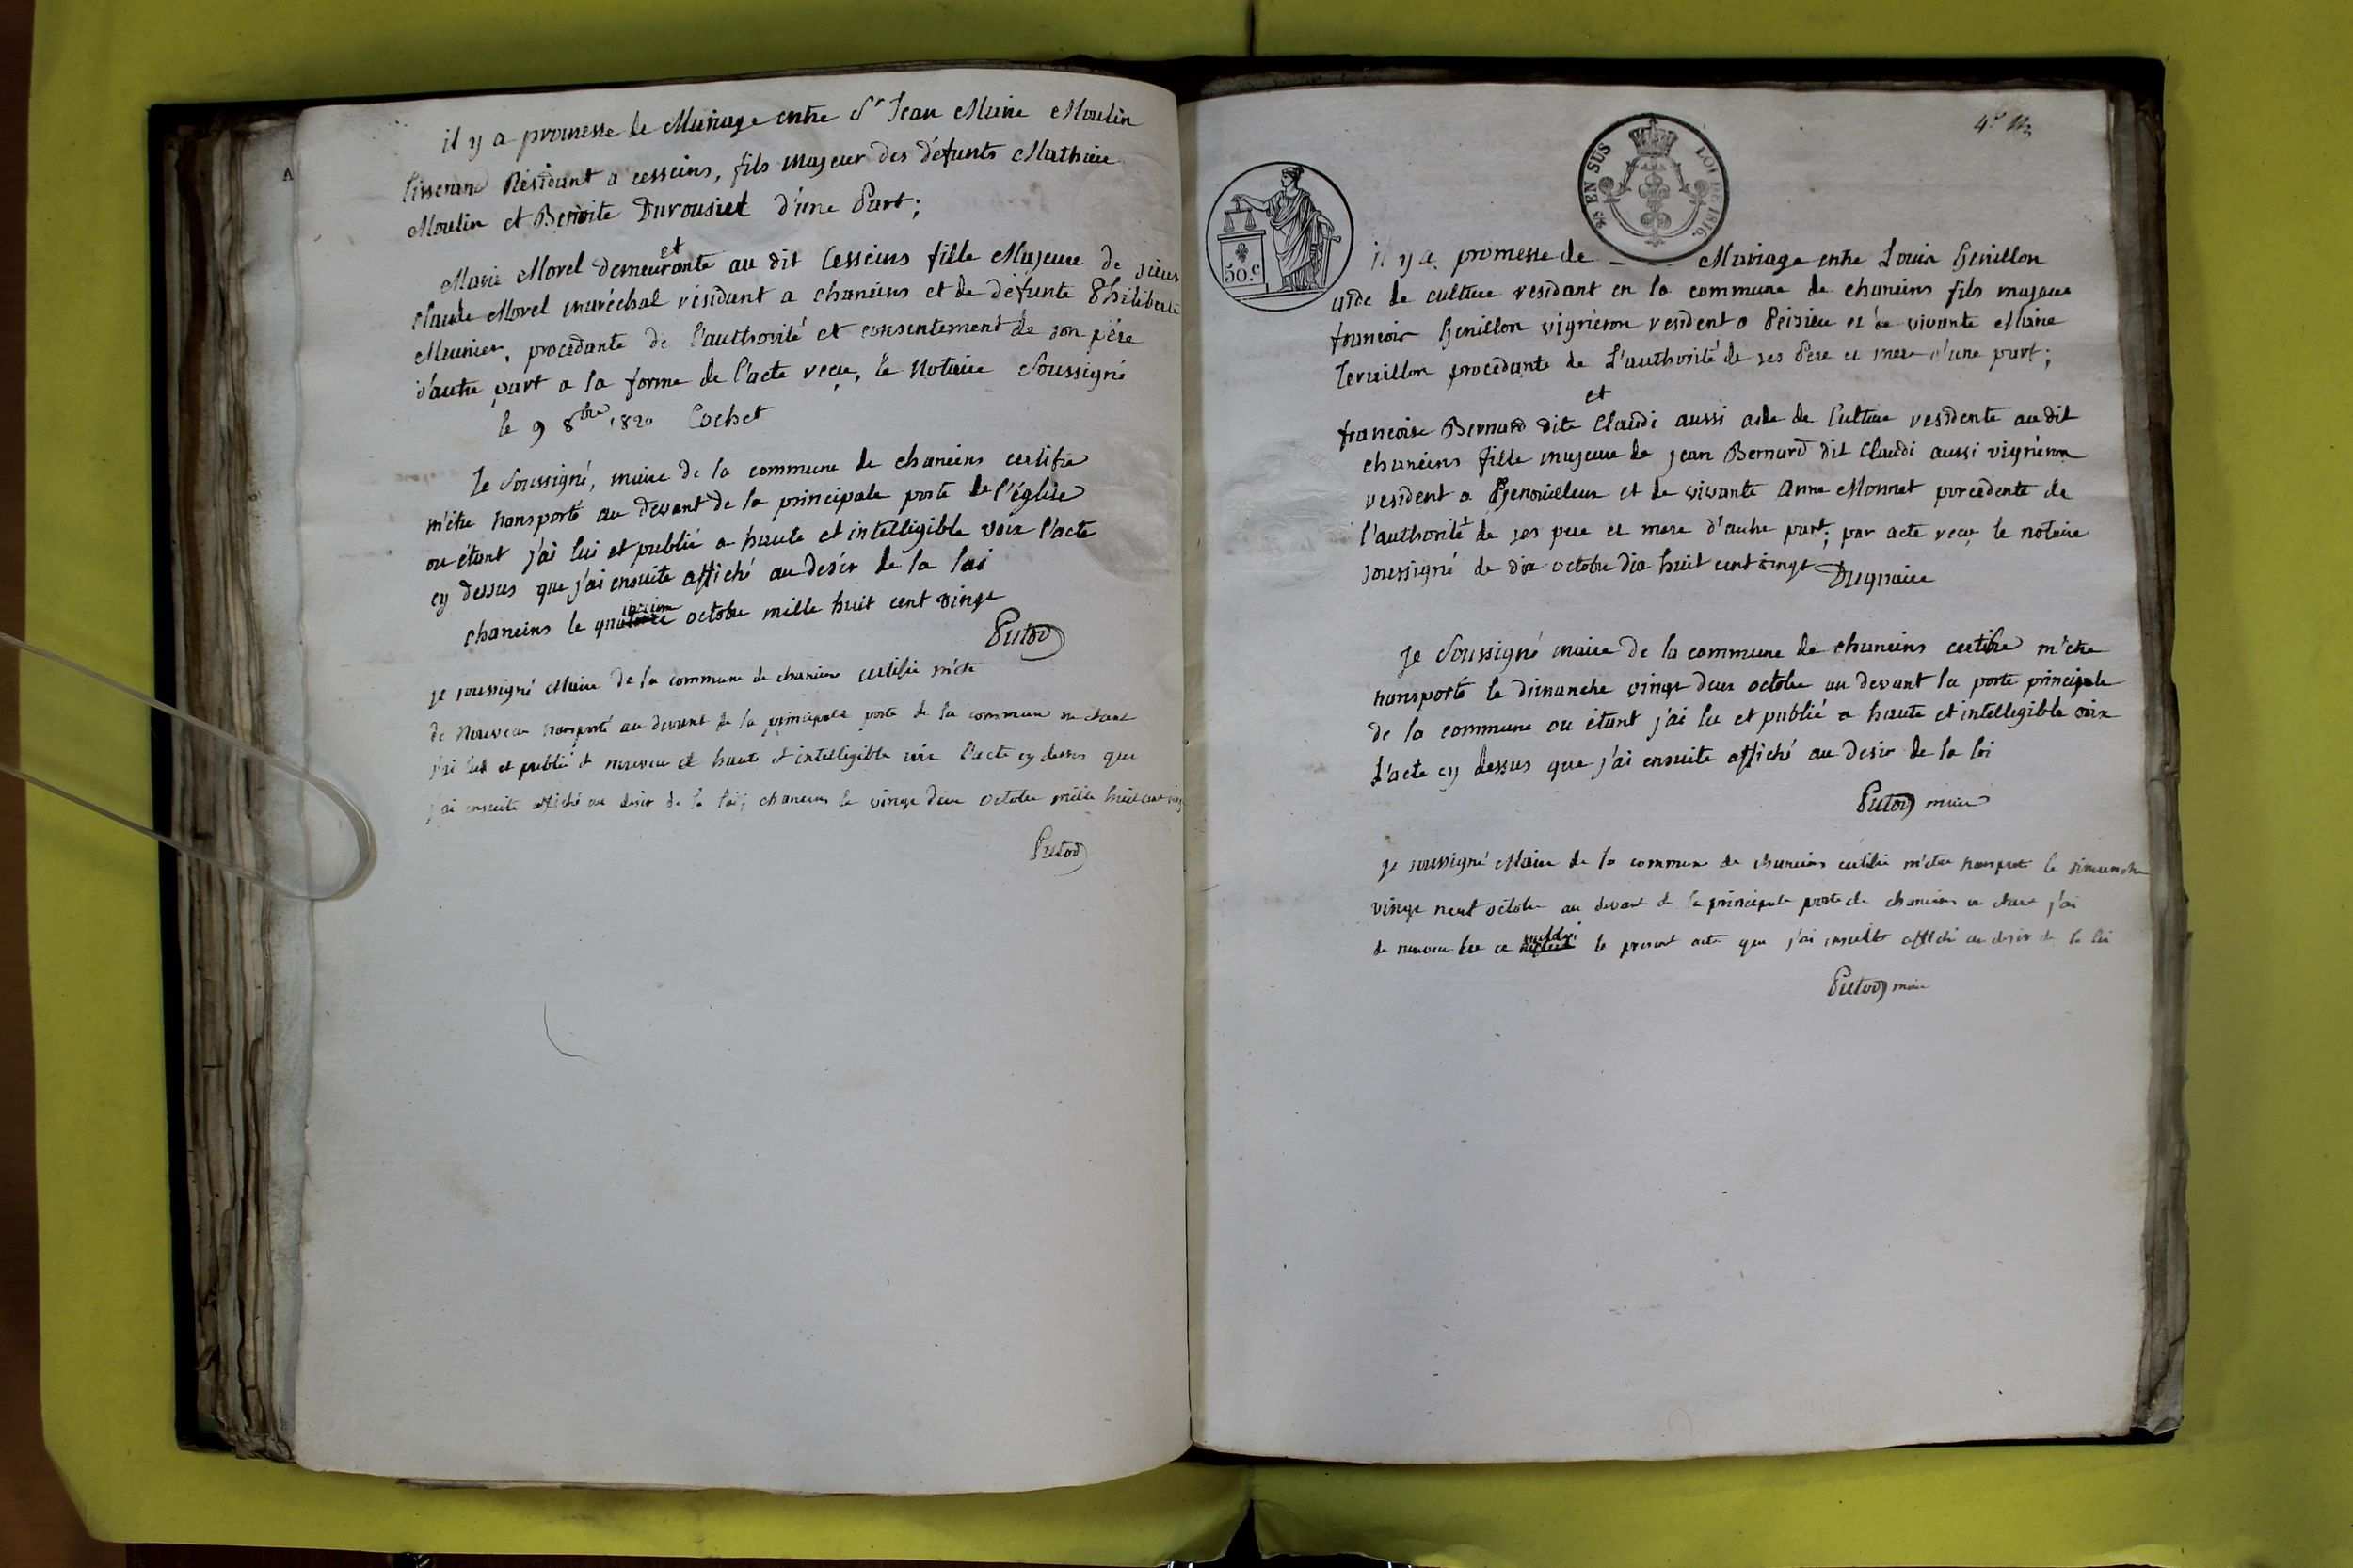 il y a promesse de Mariage entre Sr Jean Marie Moulin
Tisserand Résidant a cesseins, fils majeur des défunts Mathieu
Moulin et Benoite Durousset d'une Part;
et
Marie Morel demeurante au dit Cesseins fille Majeure de sieur
Claude Morel maréchal résidant a chaneins et de défunte Philiberte
Meunier, procédante de l'authorité et consentement de son père
d'autre part a la forme de l'acte reçu, le Notaire Soussigné
le 9 8bre 1820 Cochet
Je Soussigné, maire de la commune de chaneins certifie
m'être transporté au devant de la principale porte de l'église
ou étant j'ai lui et publié a haute et intelligible voix l'acte
cy dessus que j'ai ensuite affiché au désir de la loi
chaneins le octobre mille huit cent vingt
Putod
je soussigné Maire de la commune de chaneins certifie m'etre
de Nouveau transporté au devant de la principale porte de la commune ou etant
j'ai lut et publié d nouveau et haute et intelligible voix l'acte cy dessus que
j'ai ensuite affiché au desir de la loi; chaneins le vingt deux octobre mille huit cent ving
Putod
4e
2s EN SUS LOI DE 1816.
50.c
il y a promesse de Mariage entre Louis Genillon
aide de culture residant en la commune de chaneins fils majeur
francois Genillon vigneron resident a Peizieu et de vivante Marie
Tervaillon procedante de L'authorité de ses Pere et mere d'une part;
et
francoise Bernard dite Claudi aussi aide de Culture residente audit
chaneins fille majeure de jean Bernard dit Claudi aussi vigneron
resident a Genouilleux et de vivante Anne Monnet porcedente de
l'authorité de ses pere et mere d'autre part; par acte reçu le notaire
soussigné de dix octobre dix huit cent vingt Dugnaire
Je Soussigné maire de la commune de chaneins certifie m'etre
transporté le dimanche vingt deux octobre au devant la porte principale
de la commune ou étant j'ai lu et publié a haute et intelligible voix
L'acte cy dessus que j'ai ensuite affiché au desir de la loi
Putod maire
je soussigné Maire de la commune de chaneins certifie m'etre transporté le dimanche
vingt neuf octobre au devant d la principale porte de chaneins ou etant j'ai
de nouveau lu et le present acte que j'ai ensuite affiché au desir de la loi
Putod maire